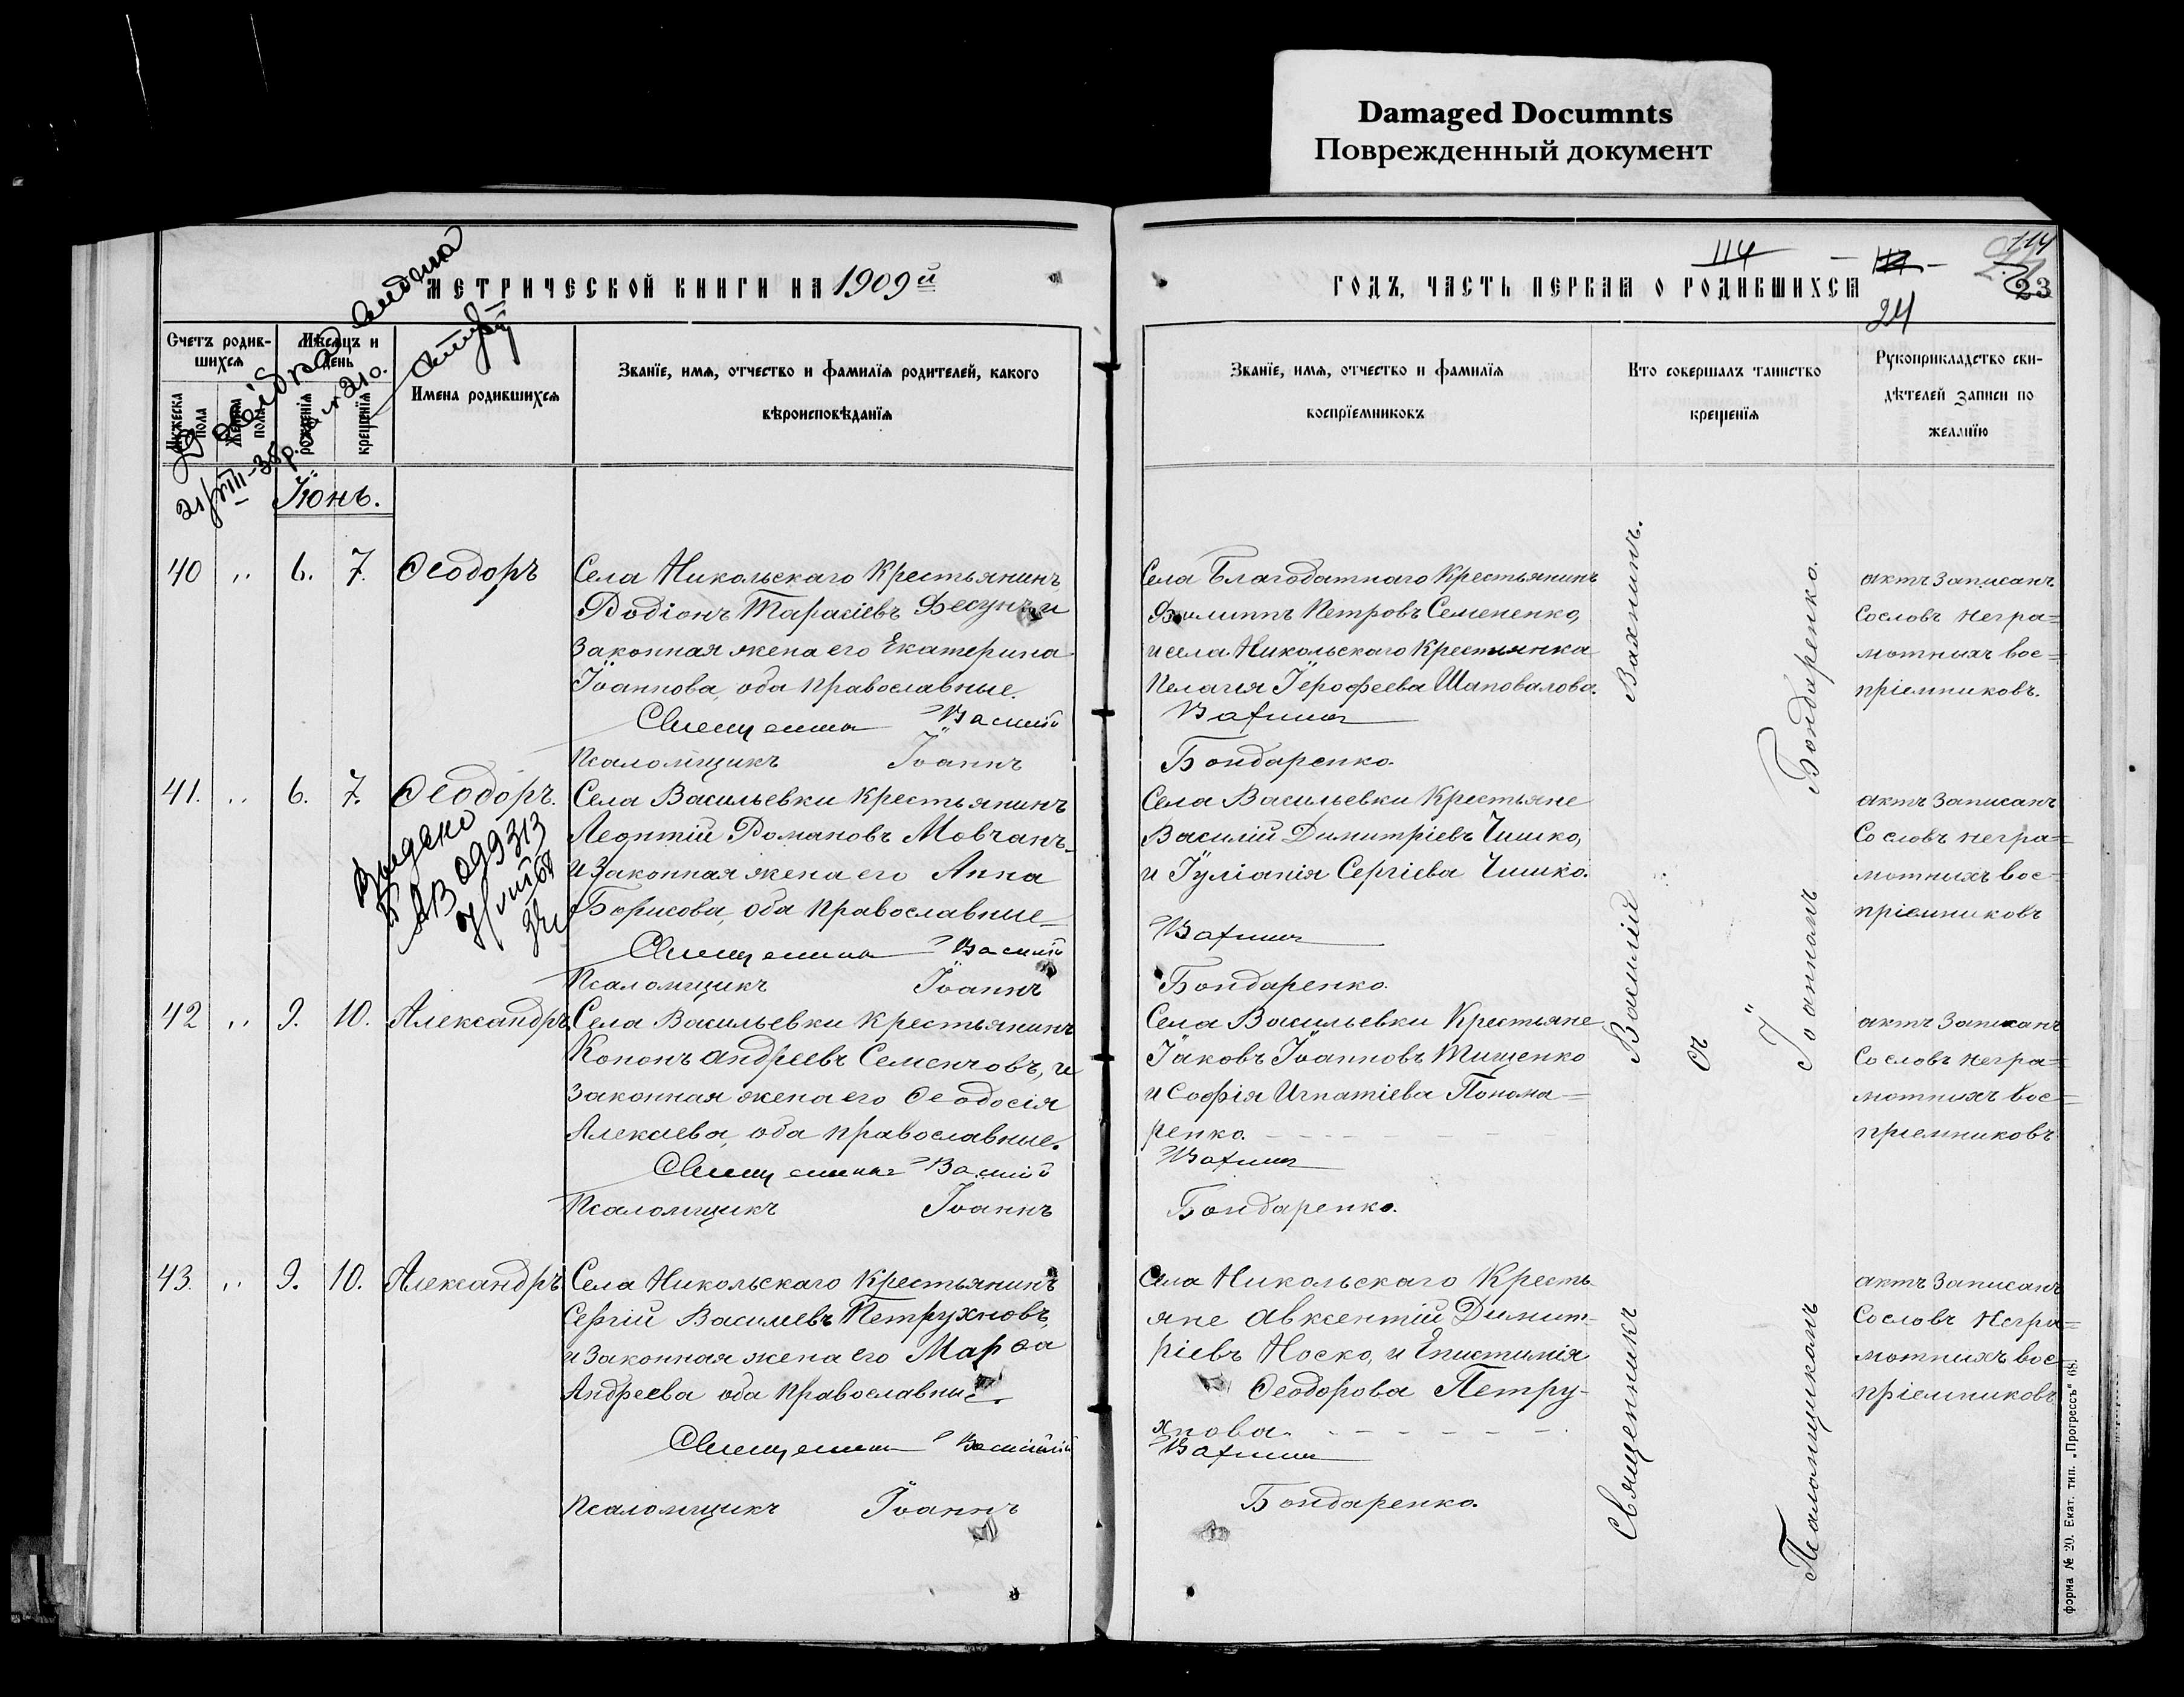 Damaged Documnts
Поврежденный документ
МЕТРИЧЕСКОЙ КНИГИ НА 1909й
Счетъ родив-
шихся
Мѣсяцъ и
день
Мужеска
пола
Женска
пола
рожденія
крещенія
Имена родившихся
Званіе, имя, отчество и фамилія родителей, какого
вѣроисповѣданія
Іюнь.
40 " 6. 7. Ѳеодоръ
Села Никольскаго Крестьянинъ
Родіонъ Тарасіевъ Фесунъ и
законная жена его Екатерина
Іоаннова, оба православные.
Священникъ Василій
Псаломщикъ Іоаннъ
41. " 6. 7. Ѳеодоръ.
Села Васильевки Крестьянинъ
Леонтій Романовъ Мовчанъ
и законная жена его Анна
Борисова, оба православные
Священникъ Василій
Псаломщикъ Іоаннъ
Выдано
42 " 9. 10. Александръ
Села Васильевки Крестьянинъ
Кононъ Андреевъ Семенчовъ, и
законная жена его Ѳеодосія
Алексіева, оба православные.
Священникъ Василій
Псаломщикъ Іоаннъ
43. " 9. 10. Александръ
Села Никольскаго Крестьянинъ
Сергій Васильевъ Петрухновъ,
и законная жена его Марѳа
Андреева оба православные.
Священникъ Василій
Псаломщикъ Іоаннъ
ГОДЪ, ЧАСТЬ ПЕРВАЯ О РОДИВШИХСЯ
114
24
114
23
Званіе, имя, отчество и фамилія
воспріемниковъ
Кто совершалъ таинство
крещенія
Рукоприкладство сви-
дѣтелей записи по
желанію
Села Благодатнаго Крестьянинъ
Филиппъ Петровъ Семененко,
и села Никольскаго Крестьянка
Пелагія Іерофеева Шаповалова.
Вахнинъ
Бондаренко.
Села Васильевки Крестьяне
Василій Димитріевъ Чишко,
и Іуліанія Сергіева Чишко.
Вахнинъ
Бондаренко.
Села Васильевки Крестьяне
Іаковъ Іоанновъ Тищенко
и Софія Игнатіева Понома=
ренко.
Вахнинъ
Бондаренко.
Села Никольскаго Кресть-
яне Авксентій Димит-
ріевъ Носко, и Епистимія
Ѳеодорова Петру-
хнова.
Вахнинъ
Бондаренко.
Священникъ Василій Вахнинъ.
съ
Псаломщикомъ Іоанномъ Бондаренко.
актъ записанъ
Со словъ негра=
мотныхъ вос=
пріемниковъ.
актъ записанъ
Со словъ негра=
мотныхъ вос=
пріемниковъ
актъ записанъ
Со словъ негра=
мотныхъ вос=
пріемниковъ
актъ записанъ
Со словъ негра=
мотныхъ вос=
пріемниковъ
форма № 20. Екат. тип. „Прогрессъ" 68.